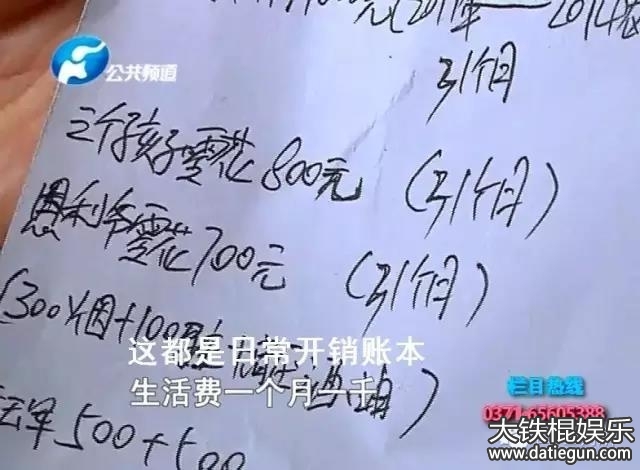 元(2011年——2014年
公共频道
31个月
三个孩子零花800元 (31个月)
恩利爷零花700元 (31个月)
(300火因+100
这都是日常开销账本
生活费一个月一千
栏目热线
0371-65605388
500+500
大铁棍娱乐
www.datiegun.com